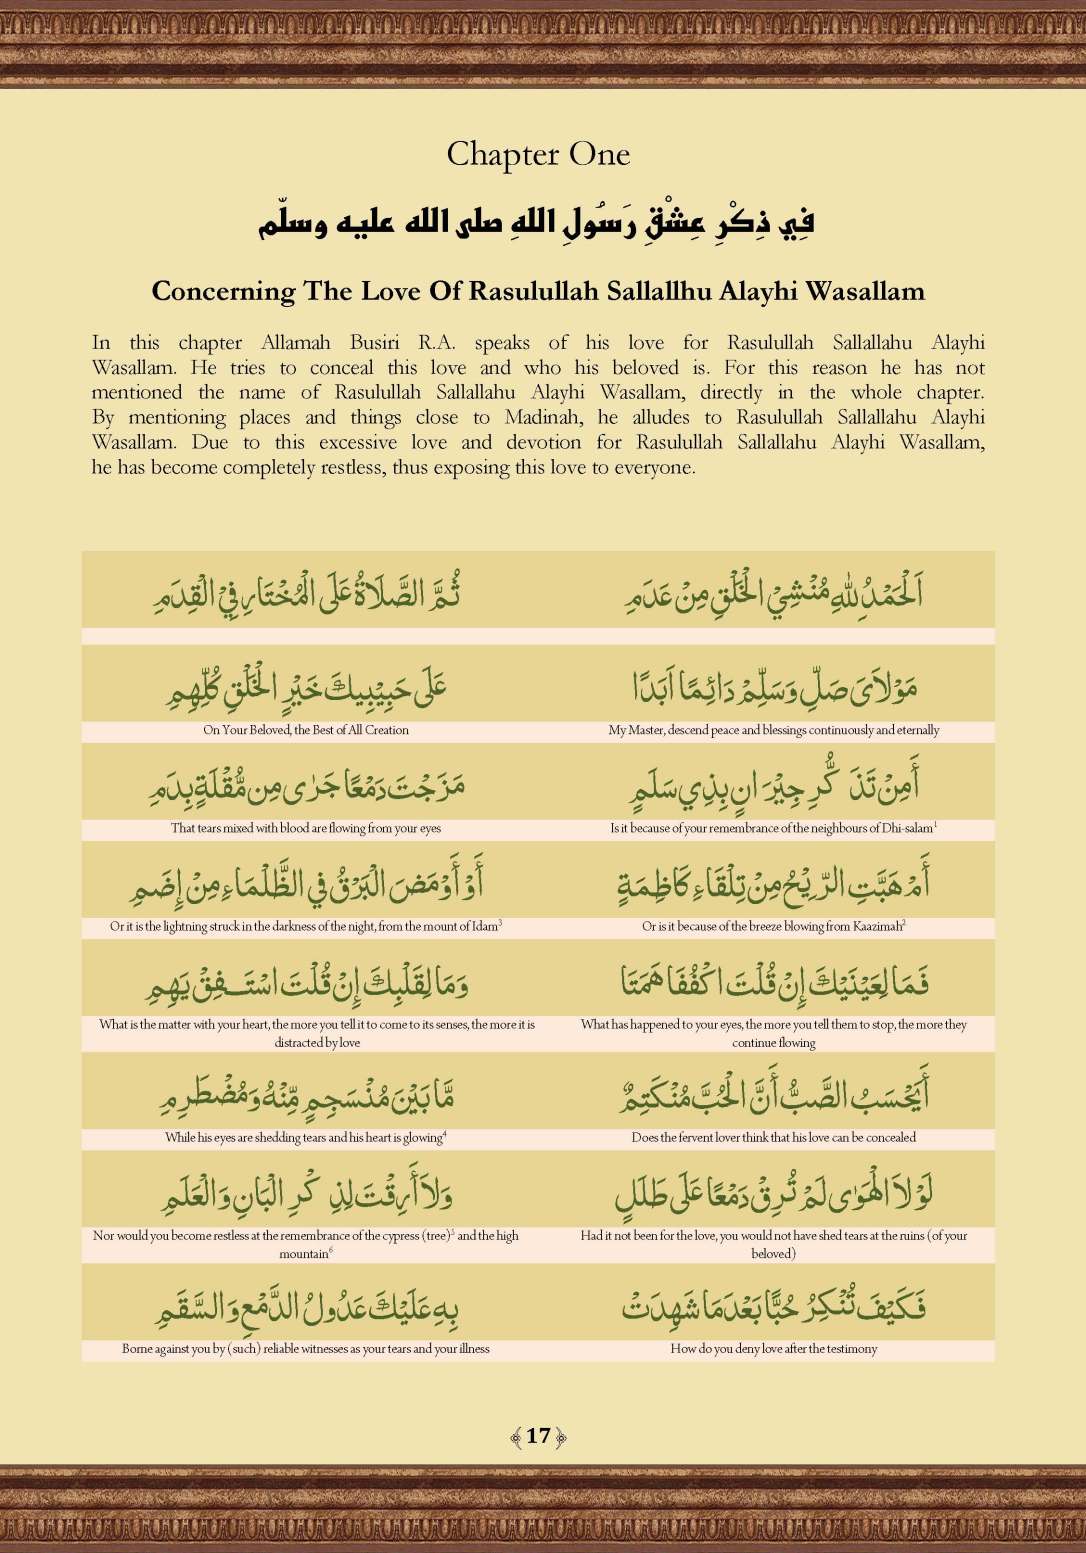 Chapter One
فِي ذِكْرِ عِشْقِ رَسُولِ اللهِ صلى الله عليه وسلّم
Concerning The Love Of Rasulullah Sallallhu Alayhi Wasallam
In this chapter Allamah Busiri R.A. speaks of his love for Rasulullah Sallallahu Alayhi
Wasallam. He tries to conceal this love and who his beloved is. For this reason he has not
mentioned the name of Rasulullah Sallallahu Alayhi Wasallam, directly in the whole chapter.
By mentioning places and things close to Madinah, he alludes to Rasulullah Sallallahu Alayhi
Wasallam. Due to this excessive love and devotion for Rasulullah Sallallahu Alayhi Wasallam,
he has become completely restless, thus exposing this love to everyone.
اَلْحَمْدُ لِلّٰهِ مُنْشِيْ الْخَلْقِ مِنْ عَدَمِ
ثُمَّ الصَّلَاةُ عَلَى الْمُخْتَارِ فِيْ الْقِدَمِ
مَوْلاَىَ صَلِّ وَسَلِّمْ دَائِمًا اَبَدًا
عَلَى حَبِيْبِيكَ خَيْرِ الْخَلْقِ كُلِّهِمِ
My Master, descend peace and blessings continuously and eternally
On Your Beloved, the Best of All Creation
أَمِنْ تَذَ كُّرِ جِيْرَ انٍ بِذِي سَلَمٍ
مَزَجْتَ دَمْعًا جَرٰى مِن مُّقْلَةٍ بِدَمِ
Is it because of your remembrance of the neighbours of Dhi-salam1
That tears mixed with blood are flowing from your eyes
أَمْ هَبَّتِ الرِّيْحُ مِنْ تِلْقَاءِ كَاظِمَةٍ
أَوْ أَوْمَضَ الْبَرْقُ فِي الظَّلْمَاءِ مِنْ إِضَمِ
Or is it because of the breeze blowing from Kaazimah2
Or it is the lightning struck in the darkness of the night, from the mount of Idam3
فَمَا لِعَيْنَيْكَ إِنْ قُلْتَ اكْفُفَا هَمَتَا
وَمَا لِقَلْبِكَ إِنْ قُلْتَ اسْتَـفِقْ يَهِمِ
What has happened to your eyes, the more you tell them to stop, the more they
continue flowing
What is the matter with your heart, the more you tell it to come to its senses, the more it is
distracted by love
أَيَحْسَبُ الصَّبُّ أَنَّ الْحُبَّ مُنْكَتِمٌ
مَّا بَيْنَ مُنْسَجِمٍ مِّنْهُ وَمُضْطَرِمِ
Does the fervent lover think that his love can be concealed
While his eyes are shedding tears and his heart is glowing4
لَوْلاَ الْهَوٰى لَمْ تُرِقْ دَمْعًا عَلَى طَلَلٍ
وَلاَ أَرِقْتَ لِذِ كْرِ الْبَانِ وَالْعَلَمِ
Had it not been for the love, you would not have shed tears at the ruins (of your
beloved)
Nor would you become restless at the remembrance of the cypress (tree)5 and the high
mountain6
فَكَيْفَ تُنْكِرُ حُبًّا بَعْدَمَا شَهِدَتْ
بِهِ عَلَيْكَ عَدُولُ الدَّمْعِ وَالسَّقَمِ
How do you deny love after the testimony
Borne against you by (such) reliable witnesses as your tears and your illness
17